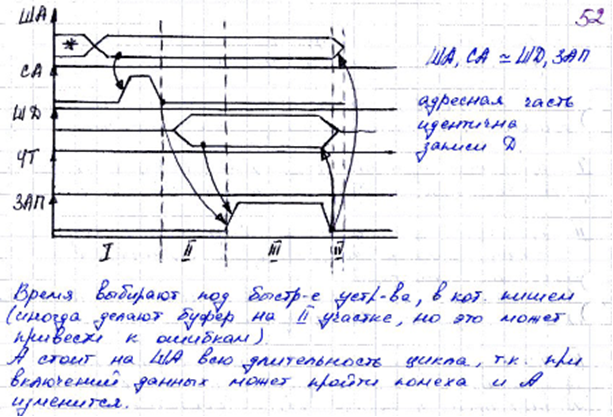 52
ША
*
СА
ШД
ЧТ
ЗАП
I II III IV
ША, СА ≃ ШД, ЗАП
адресная часть
идентична
записи Д
Время выбирают под быстр-е устр-ва, в кот. пишем
(иногда делают буфер на II участке, но это может
привести к ошибкам).
А стоит на ША всю длительность цикла, т.к. при
включений данных может пройти помеха и А
изменится.